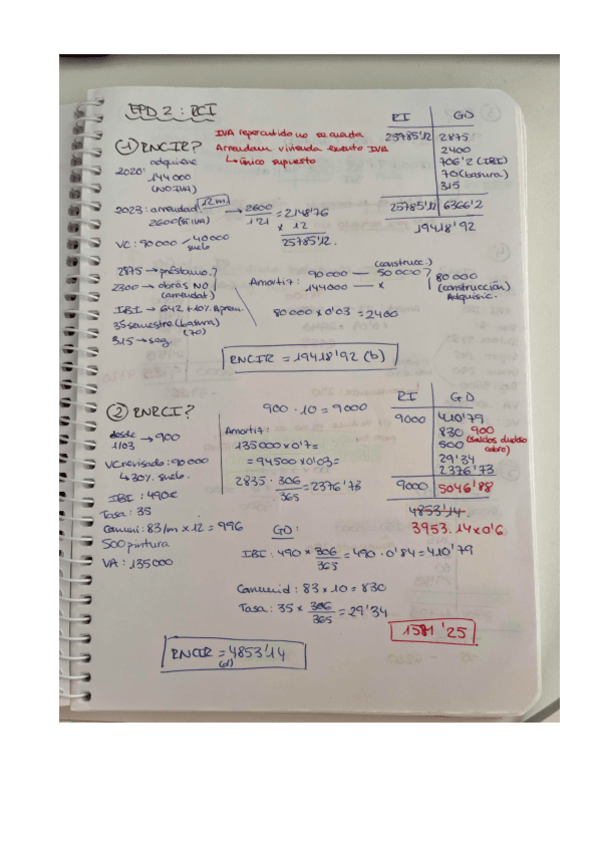 EPD 2: RCI
① RNCIR?
IVA repercutido no se cuenta
Arrendam vivienda exento IVA
↳ único supuesto
2020: adquiere
144 000
(NO IVA)
2023: arrendad (12m) → 2600/1'21 = 2148'76
2600 (sí IVA)
x 12
25785'12.
VC: 90 000 40 000
suelo
RI | GD
25785'12 | 2875
2400
706'2 (IBI)
70 (basura)
315
25785'12 | 6366'2
19418'92
2875 → préstamo?
2300 → obras NO
(arrendat)
IBI → 642 + 10% Aprem.
35 semestre (basura)
(70)
315 → seg.
Amortiz:
(construcc.)
90 000 — 50 000?
144000 — x
80 000
(construcción)
Adquisic.
80 000 x 0'03 = 2400
RNCIR = 19418'92 (b)
② RNRCI?
900 · 10 = 9000
desde
1/03 → 900
VC revisado: 90 000
↳ 30% suelo.
IBI: 490€
Tasa: 35
Comuni: 83/m x 12 = 996
500 pintura
VA: 135 000
Amortiz:
135 000 x 0'7 =
= 94500 x 0'03 =
2835 · 306/365 = 2376'73
RI | GD
9000 | 410'79
830 900
500 (saldos dudoso
cobro)
29'34
2376'73
9000 | 5046'88
4853'14.
3953.14 x 0'6
GD:
IBI: 490 x 306/365 = 490 · 0'84 = 410'79
Comunid: 83 x 10 = 830
Tasa: 35 x 306/365 = 29'34
1581'25
RNCIR = 4853'14
(d)